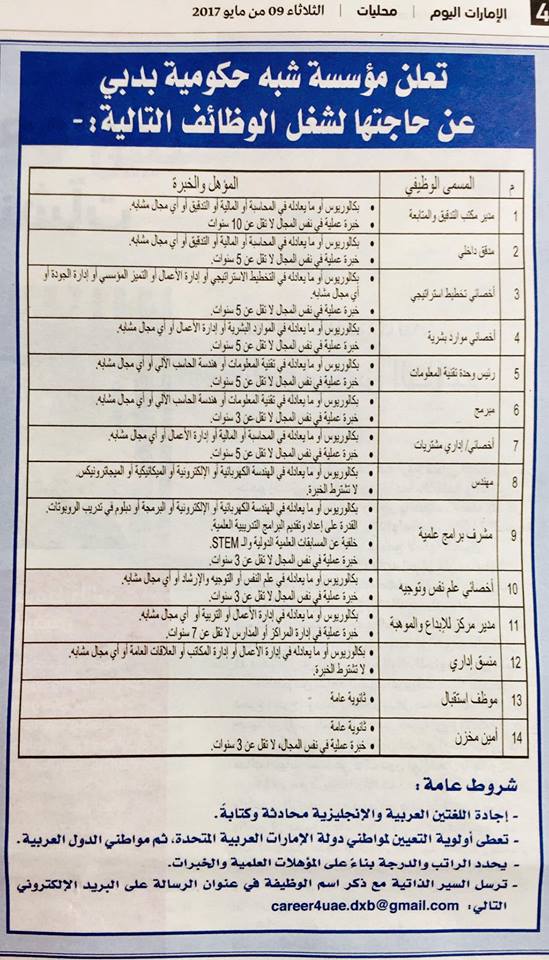 4 الإمارات اليوم | محليات | الثلاثاء 09 من مايو 2017
تعلن مؤسسة شبه حكومية بدبي
عن حاجتها لشغل الوظائف التالية:-
م المسمى الوظيفي المؤهل والخبرة
1 مدير مكتب التدقيق والمتابعة
• بكالوريوس أو ما يعادله في المحاسبة أو المالية أو التدقيق أو أي مجال مشابه.
• خبرة عملية في نفس المجال لا تقل عن 10 سنوات
2 مدقق داخلي
• بكالوريوس أو ما يعادله في المحاسبة أو المالية أو التدقيق أو أي مجال مشابه.
• خبرة عملية في نفس المجال لا تقل عن 5 سنوات.
3 أخصائي تخطيط استراتيجي
• بكالوريوس أو ما يعادله في التخطيط الاستراتيجي أو إدارة الأعمال أو التميز المؤسسي أو إدارة الجودة أو
أي مجال مشابه.
• خبرة عملية في نفس المجال لا تقل عن 5 سنوات.
4 أخصائي موارد بشرية
• بكالوريوس أو ما يعادله في الموارد البشرية أو إدارة الأعمال أو أي مجال مشابه.
• خبرة عملية في نفس المجال لا تقل عن 5 سنوات.
5 رئيس وحدة تقنية المعلومات
• بكالوريوس أو ما يعادله في تقنية المعلومات أو هندسة الحاسب الآلي أو أي مجال مشابه.
• خبرة عملية في نفس المجال لا تقل عن 5 سنوات.
6 مبرمج
• بكالوريوس أو ما يعادله في تقنية المعلومات أو هندسة الحاسب الآلي أو أي مجال مشابه.
• خبرة عملية في نفس المجال لا تقل عن 3 سنوات.
7 أخصائي/ إداري مشتريات
• بكالوريوس أو ما يعادله في المحاسبة أو المالية أو إدارة الأعمال أو أي مجال مشابه.
• خبرة عملية في نفس المجال لا تقل عن 5 سنوات.
8 مهندس
• بكالوريوس أو ما يعادله في الهندسة الكهربائية أو الإلكترونية أو الميكانيكية أو الميجاترونيكس.
• لا تشترط الخبرة.
9 مشرف برامج علمية
• بكالوريوس أو ما يعادله في الهندسة الكهربائية أو الإلكترونية أو البرمجة أو دبلوم في تدريب الروبوتات.
• القدرة على إعداد وتقديم البرامج التدريبية العلمية.
• خلفية عن المسابقات العلمية الدولية والـ STEM.
• خبرة عملية في نفس المجال لا تقل عن 3 سنوات.
10 أخصائي علم نفس وتوجيه
• بكالوريوس أو ما يعادله في علم النفس أو التوجيه والإرشاد أو أي مجال مشابه.
• خبرة عملية في نفس المجال لا تقل عن 3 سنوات.
11 مدير مركز للإبداع والموهبة
• بكالوريوس أو ما يعادله في إدارة الأعمال أو التربية أو أي مجال مشابه.
• خبرة عملية في إدارة المراكز أو المدارس لا تقل عن 7 سنوات.
12 منسق إداري
• بكالوريوس أو ما يعادله في إدارة الأعمال أو إدارة المكاتب أو العلاقات العامة أو أي مجال مشابه.
• لا تشترط الخبرة.
13 موظف استقبال
• ثانوية عامة
14 أمين مخزن
• ثانوية عامة
• خبرة عملية في نفس المجال، لا تقل عن 3 سنوات.
شروط عامة:
- إجادة اللغتين العربية والإنجليزية محادثة وكتابة.
- تعطى أولوية التعيين لمواطني دولة الإمارات العربية المتحدة، ثم مواطني الدول العربية.
- يحدد الراتب والدرجة بناءً على المؤهلات العلمية والخبرات.
- ترسل السير الذاتية مع ذكر اسم الوظيفة في عنوان الرسالة على البريد الإلكتروني
التالي: career4uae.dxb@gmail.com